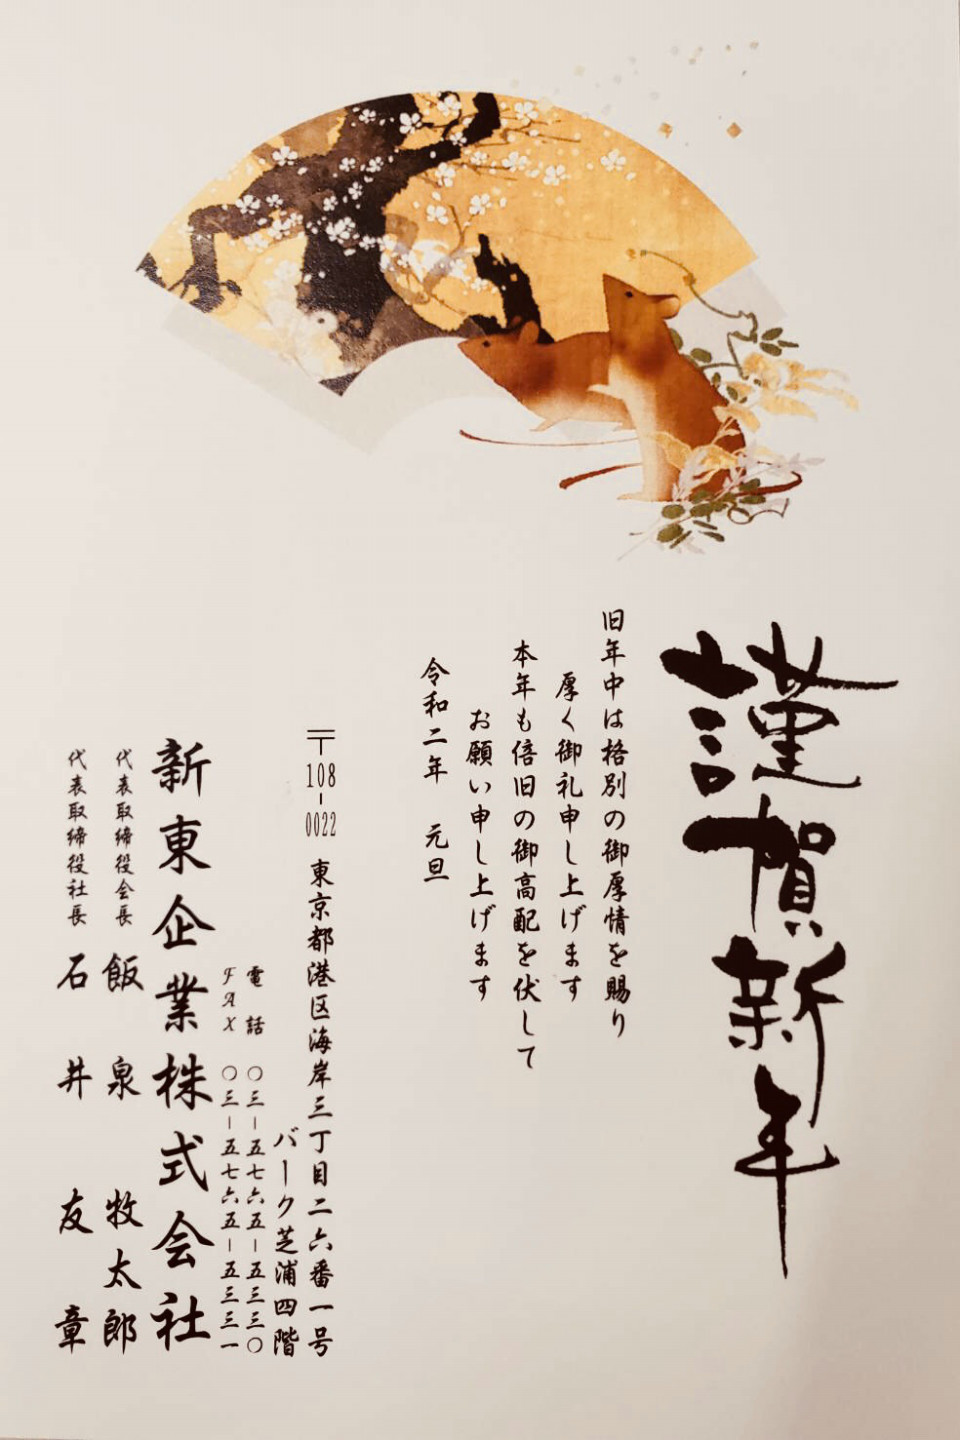 謹賀新年
旧年中は格別の御厚情を賜り
厚く御礼申し上げます
本年も倍旧の御高配を伏して
お願い申し上げます
令和二年 元旦
〒108-0022 東京都港区海岸三丁目二六番一号
バーク芝浦四階
電話 〇三-五七六五-五三三〇
FAX 〇三-五七六五-五三三一
新東企業株式会社
代表取締役会長 飯泉 牧太郎
代表取締役社長 石井 友章